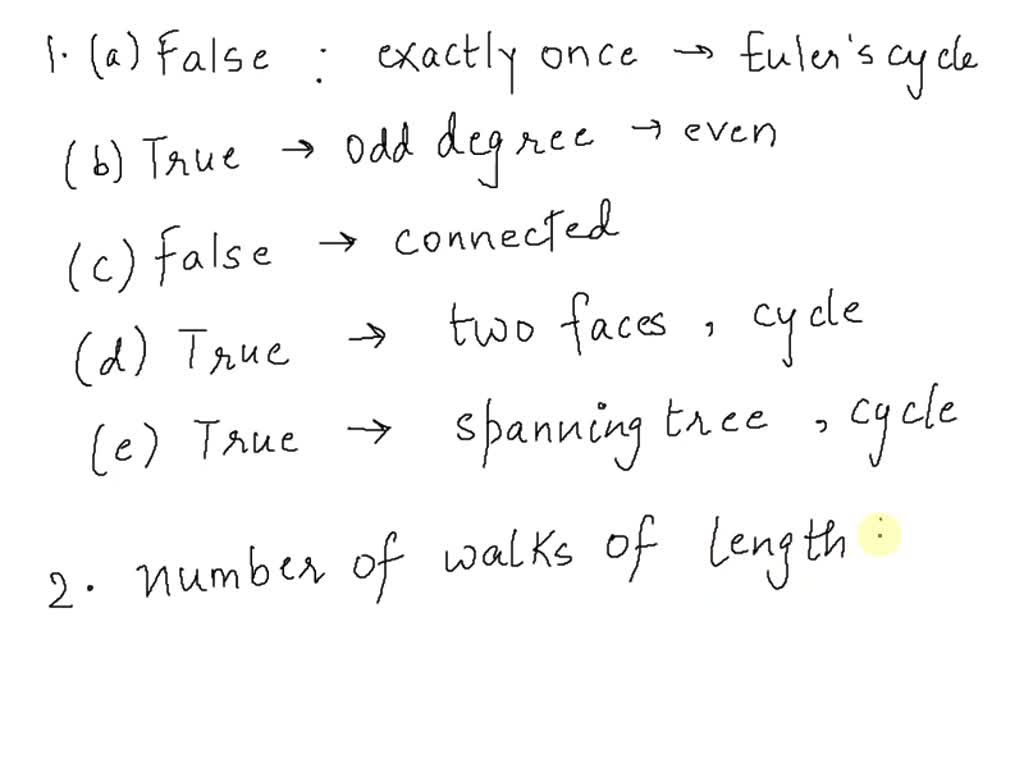 1. (a) False : exactly once → Euler's cycle
(b) True → odd degree → even
(c) False → connected
(d) True → two faces, cycle
(e) True → spanning tree, cycle
2. number of walks of length :